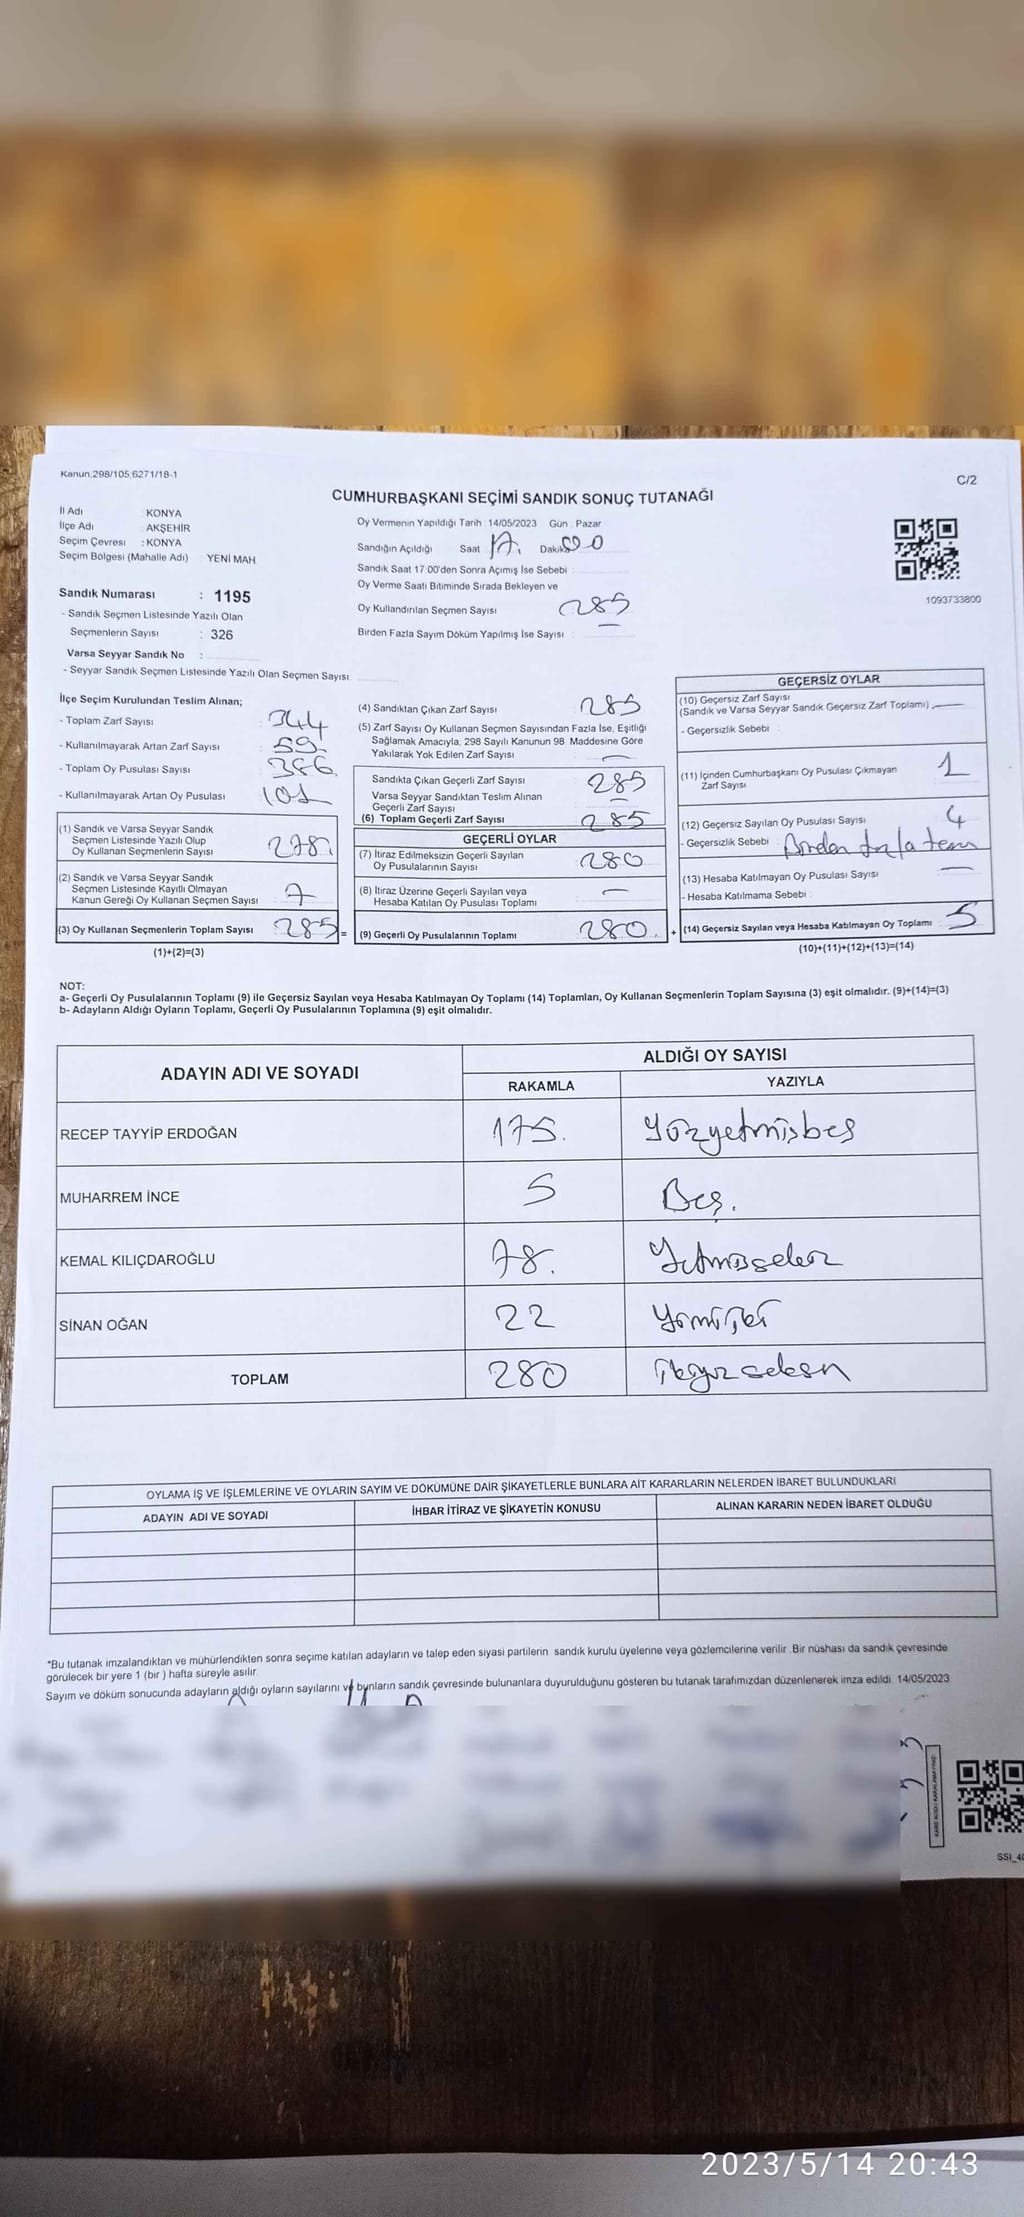 Kanun;298/105;6271/18-1
C/2
CUMHURBAŞKANI SEÇİMİ SANDIK SONUÇ TUTANAĞI
İl Adı : KONYA
İlçe Adı : AKŞEHİR
Seçim Çevresi : KONYA
Seçim Bölgesi (Mahalle Adı) : YENİ MAH
Sandık Numarası : 1195
- Sandık Seçmen Listesinde Yazılı Olan
Seçmenlerin Sayısı : 326
Varsa Seyyar Sandık No :
- Seyyar Sandık Seçmen Listesinde Yazılı Olan Seçmen Sayısı:
Oy Vermenin Yapıldığı Tarih : 14/05/2023 Gün : Pazar
Sandığın Açıldığı Saat 17. Dakika 00
Sandık Saat 17:00'den Sonra Açımış İse Sebebi :
Oy Verme Saati Bitiminde Sırada Bekleyen ve
Oy Kullandırılan Seçmen Sayısı 285
Birden Fazla Sayım Döküm Yapılmış İse Sayısı :
1093733800
İlçe Seçim Kurulundan Teslim Alınan;
- Toplam Zarf Sayısı : 344
- Kullanılmayarak Artan Zarf Sayısı : 59
- Toplam Oy Pusulası Sayısı : 386
- Kullanılmayarak Artan Oy Pusulası : 101
(1) Sandık ve Varsa Seyyar Sandık
Seçmen Listesinde Yazılı Olup
Oy Kullanan Seçmenlerin Sayısı 278
(2) Sandık ve Varsa Seyyar Sandık
Seçmen Listesinde Kayıtlı Olmayan
Kanun Gereği Oy Kullanan Seçmen Sayısı : 7
(3) Oy Kullanan Seçmenlerin Toplam Sayısı : 285 =
(1)+(2)=(3)
(4) Sandıktan Çıkan Zarf Sayısı 285
(5) Zarf Sayısı Oy Kullanan Seçmen Sayısından Fazla İse, Eşitliği
Sağlamak Amacıyla, 298 Sayılı Kanunun 98. Maddesine Göre
Yakılarak Yok Edilen Zarf Sayısı —
Sandıkta Çıkan Geçerli Zarf Sayısı 285
Varsa Seyyar Sandıktan Teslim Alınan
Geçerli Zarf Sayısı —
(6) Toplam Geçerli Zarf Sayısı : 285
GEÇERLİ OYLAR
(7) İtiraz Edilmeksizin Geçerli Sayılan
Oy Pusulalarının Sayısı 280
(8) İtiraz Üzerine Geçerli Sayılan veya
Hesaba Katılan Oy Pusulası Toplamı —
(9) Geçerli Oy Pusulalarının Toplamı 280 +
GEÇERSİZ OYLAR
(10) Geçersiz Zarf Sayısı
(Sandık ve Varsa Seyyar Sandık Geçersiz Zarf Toplamı) —
- Geçersizlik Sebebi :
(11) İçinden Cumhurbaşkanı Oy Pusulası Çıkmayan
Zarf Sayısı 1
(12) Geçersiz Sayılan Oy Pusulası Sayısı 4
- Geçersizlik Sebebi : Birden fazla
(13) Hesaba Katılmayan Oy Pusulası Sayısı —
- Hesaba Katılmama Sebebi :
(14) Geçersiz Sayılan veya Hesaba Katılmayan Oy Toplamı : 5
(10)+(11)+(12)+(13)=(14)
NOT:
a- Geçerli Oy Pusulalarının Toplamı (9) ile Geçersiz Sayılan veya Hesaba Katılmayan Oy Toplamı (14) Toplamları, Oy Kullanan Seçmenlerin Toplam Sayısına (3) eşit olmalıdır. (9)+(14)=(3)
b- Adayların Aldığı Oyların Toplamı, Geçerli Oy Pusulalarının Toplamına (9) eşit olmalıdır.
ADAYIN ADI VE SOYADI
ALDIĞI OY SAYISI
RAKAMLA YAZIYLA
RECEP TAYYİP ERDOĞAN 175. Yüzyetmişbeş
MUHARREM İNCE 5 Beş.
KEMAL KILIÇDAROĞLU 78. Yetmişsekiz
SİNAN OĞAN 22 Yirmiiki
TOPLAM 280 ikiyüzseksen
OYLAMA İŞ VE İŞLEMLERİNE VE OYLARIN SAYIM VE DÖKÜMÜNE DAİR ŞİKAYETLERLE BUNLARA AİT KARARLARIN NELERDEN İBARET BULUNDUKLARI
ADAYIN ADI VE SOYADI İHBAR İTİRAZ VE ŞİKAYETİN KONUSU ALINAN KARARIN NEDEN İBARET OLDUĞU
*Bu tutanak imzalandıktan ve mühürlendikten sonra seçime katılan adayların ve talep eden siyasi partilerin sandık kurulu üyelerine veya gözlemcilerine verilir. Bir nüshası da sandık çevresinde
görülecek bir yere 1 (bir ) hafta süreyle asılır.
Sayım ve döküm sonucunda adayların aldığı oyların sayılarını ve bunların sandık çevresinde bulunanlara duyurulduğunu gösteren bu tutanak tarafımızdan düzenlenerek imza edildi. 14/05/2023
2023/5/14 20:43